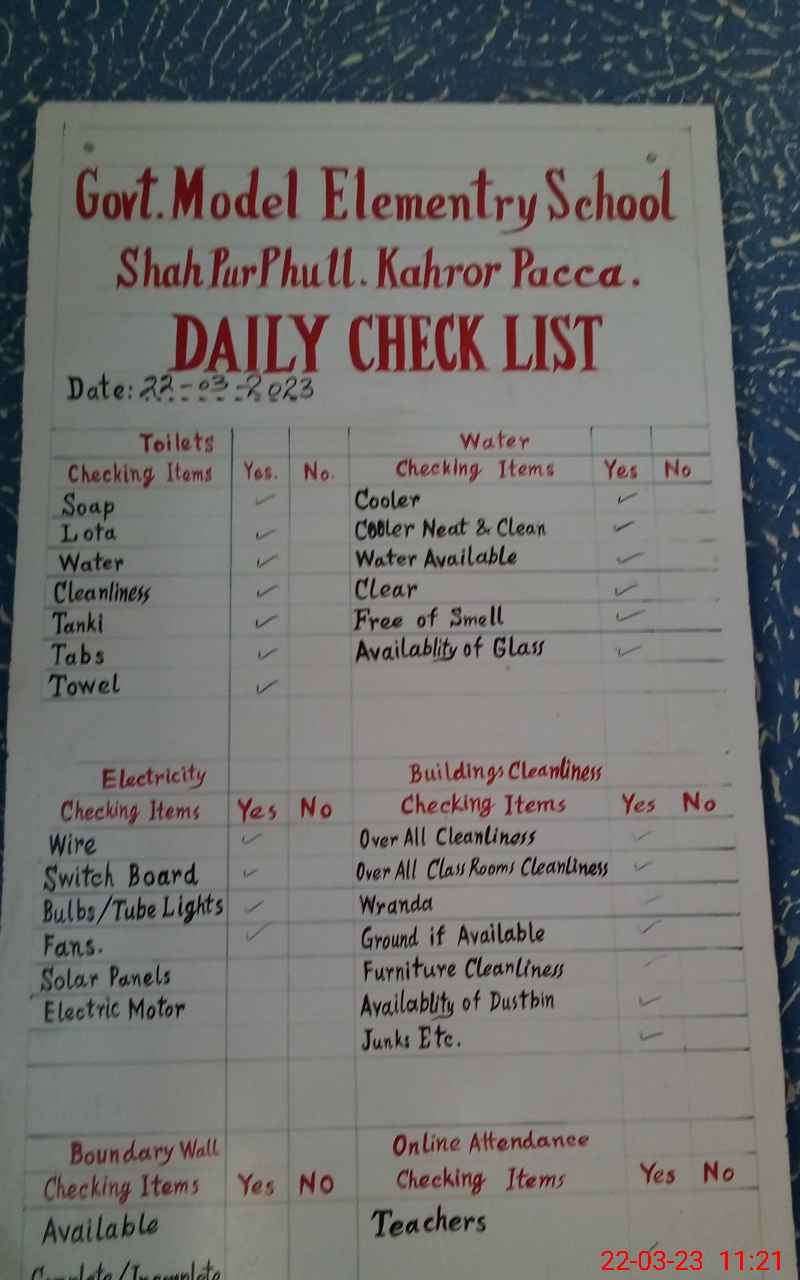 Govt. Model Elementry School
Shah Pur Phull. Kahror Pacca.
DAILY CHECK LIST
Date: 22-03-2023
Toilets Water
Checking Items Yes. No. Checking Items Yes No
Soap ✓ Cooler ✓
Lota ✓ Cooler Neat & Clean ✓
Water ✓ Water Available ✓
Cleanliness ✓ Clear ✓
Tanki ✓ Free of Smell ✓
Tabs ✓ Availablity of Glass ✓
Towel ✓
Electricity Buildings Cleanliness
Checking Items Yes No Checking Items Yes No
Wire ✓ Over All Cleanliness ✓
Switch Board ✓ Over All Class Rooms Cleanliness ✓
Bulbs/Tube Lights ✓ Wranda ✓
Fans. ✓ Ground if Available ✓
Solar Panels Furniture Cleanliness ✓
Electric Motor Availablity of Dustbin ✓
Junks Etc. ✓
Boundary Wall Online Attendance
Checking Items Yes No Checking Items Yes No
Available Teachers
Complete/Incomplete
22-03-23 11:21